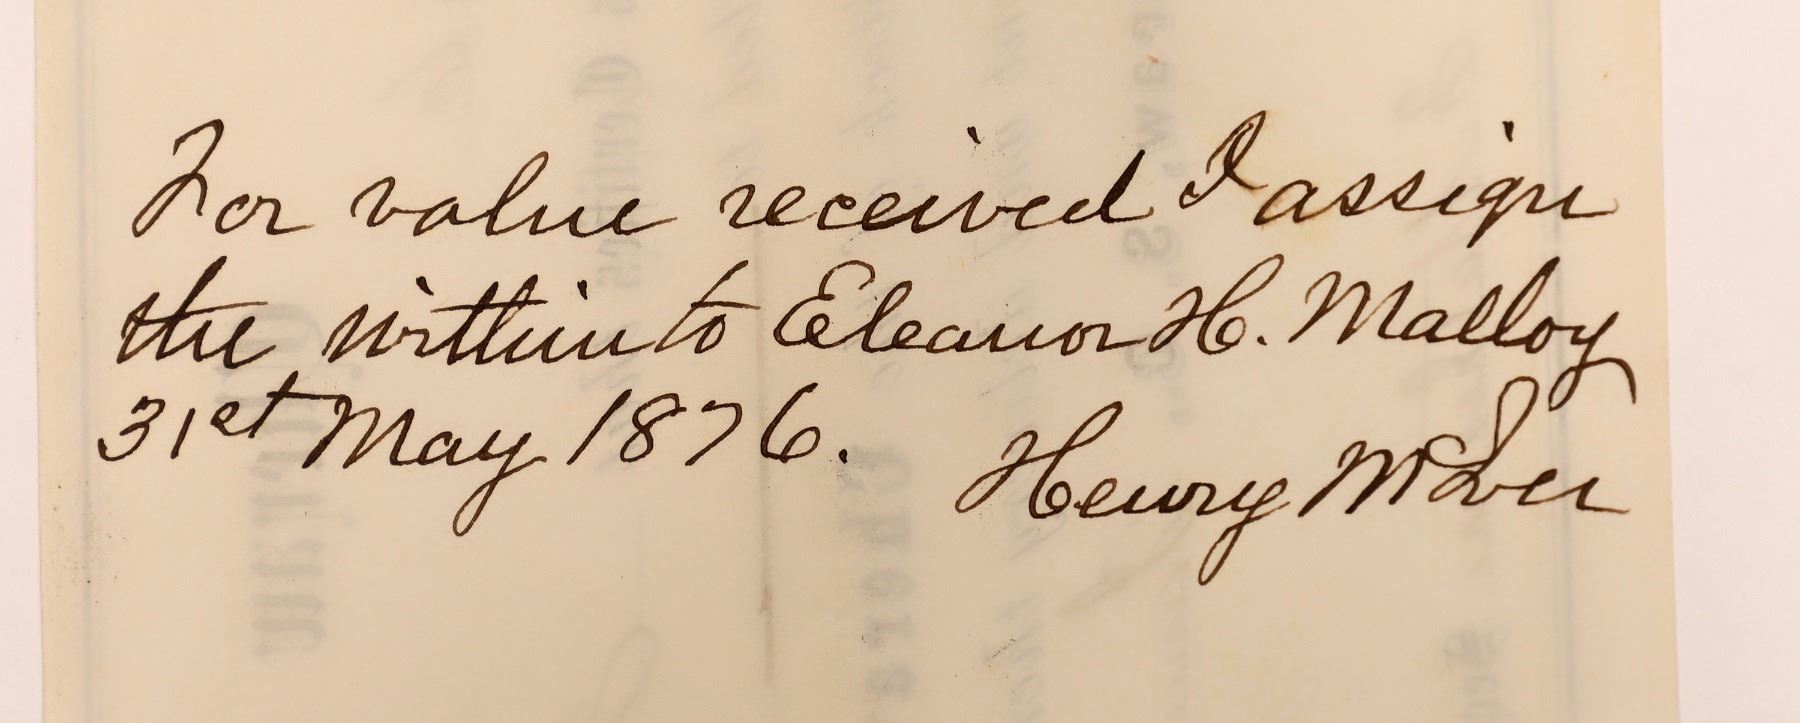 For value received I assign
the within to Eleanor H. Malloy
31st May 1876.
Henry McIver